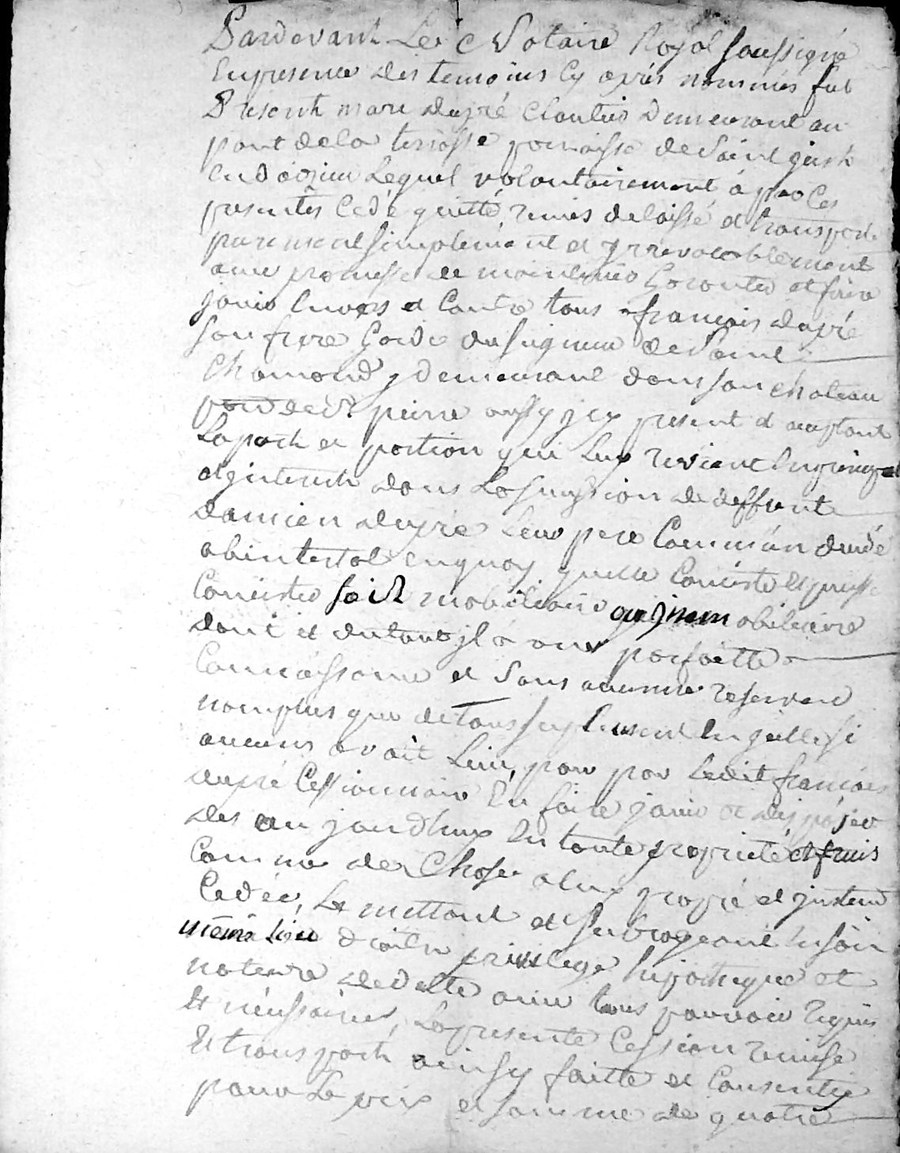 Pardevant Le Notaire Royal soussigné
En presence des temoins cy aprés nommés fut
Present marc dupré Cloutier Demeurant au
pont de la terrasse paroisse de Saint just
En Doizieu Lequel volontairement à par Ces
presentes Cedé quitté remis delaissé et transporté
purement simplement et yrrevocablement
avec promesse de maintenir Garantir et faire
jouir Envers et Contre tous à françois dupré
Son frere Garde du Seigneur de Saint
Chamond y demeurant dans Son chateau
pierre aussy icy present et acceptant
La part et portion qui Luy revient En principal
et jnterests dans La Succession de deffunt
Damien dupré Leur pere Commun decedé
abintestat En quoy qu'elle Consiste Et puisse
Consister soit mobiliaire ou jmmobiliaire
dont il a une parfaitte
Connoissance et Sans aucune reserve
non plus que de tous En qu'elle si
aucuns avait pour par Ledit françois
dupré Cessionnaire En faire jouir et disposer
des aujourdhuy En toute proprieté et fruits
Comme de Chose a luy propre et justement
Cedée, Le mettant et Subrogeant En Son
même lieu droit privilege hipotheque et
nature de dette avec tous pouvoir requis
Et nécessaires, La presente Cession remise
Et transport ainsy faitte et Consentie
pour Le prix et Somme de quatre